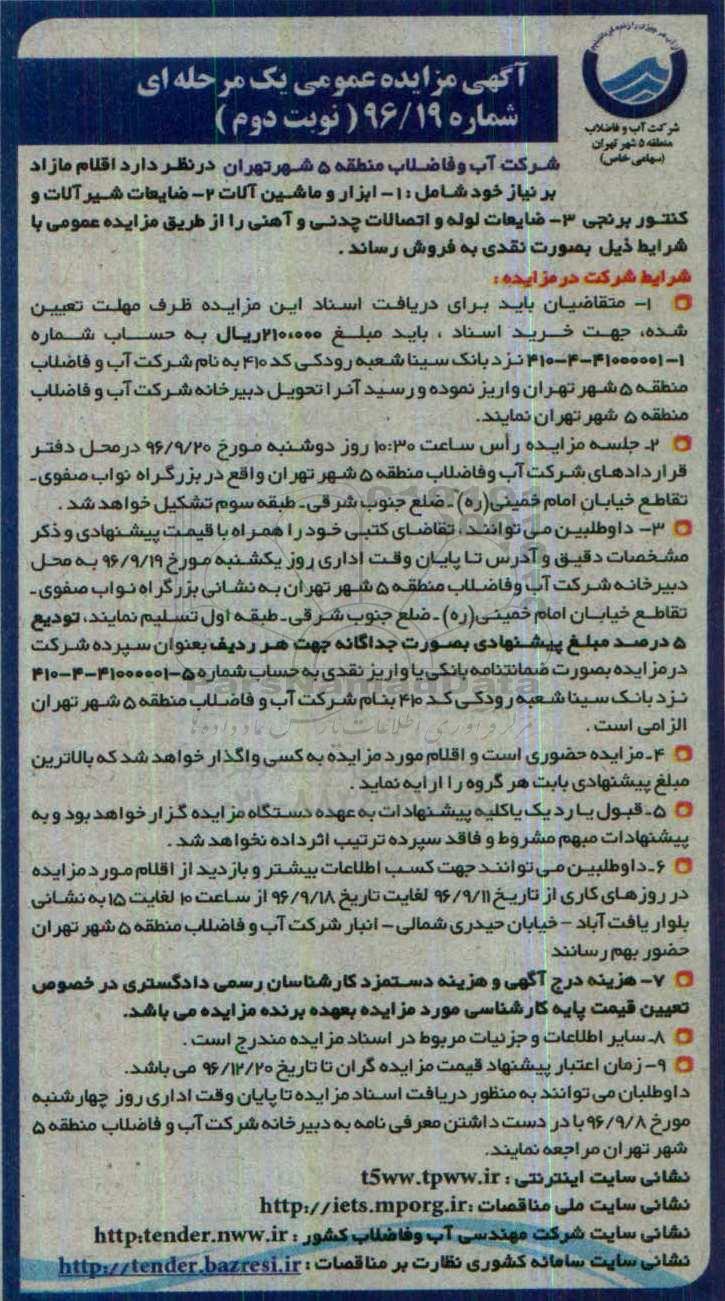 آگهی مزایده عمومی یک مرحله ای
شماره ۹۶/۱۹ ( نوبت دوم )
شرکت آب و فاضلاب
منطقه ۵ شهر تهران
(سهامی خاص)
شرکت آب وفاضلاب منطقه ۵ شهرتهران درنظر دارد اقلام مازاد
بر نیاز خود شامل : ۱- ابزار و ماشین آلات ۲- ضایعات شیرآلات و
کنتور برنجی ۳- ضایعات لوله و اتصالات چدنی و آهنی را از طریق مزایده عمومی با
شرایط ذیل بصورت نقدی به فروش رساند .
شرایط شرکت درمزایده :
۱- متقاضیان باید برای دریافت اسناد این مزایده ظرف مهلت تعیین
شده، جهت خرید اسناد ، باید مبلغ ۲۱۰،۰۰۰ریال به حساب شماره
۱-۴۱۰-۴-۴۱۰۰۰۰۰۱ نزد بانک سینا شعبه رودکی کد ۴۱۰ به نام شرکت آب و فاضلاب
منطقه ۵ شهر تهران واریز نموده و رسید آنرا تحویل دبیرخانه شرکت آب و فاضلاب
منطقه ۵ شهر تهران نمایند.
۲- جلسه مزایده رأس ساعت ۱۰:۳۰ روز دوشنبه مورخ ۹۶/۹/۲۰ درمحل دفتر
قراردادهای شرکت آب وفاضلاب منطقه ۵ شهر تهران واقع در بزرگراه نواب صفوی -
تقاطع خیابان امام خمینی(ره) - ضلع جنوب شرقی - طبقه سوم تشکیل خواهد شد .
۳- داوطلبین می توانند ، تقاضای کتبی خود را همراه با قیمت پیشنهادی و ذکر
مشخصات دقیق و آدرس تا پایان وقت اداری روز یکشنبه مورخ ۹۶/۹/۱۹ به محل
دبیرخانه شرکت آب وفاضلاب منطقه ۵ شهر تهران به نشانی بزرگراه نواب صفوی -
تقاطع خیابان امام خمینی(ره) - ضلع جنوب شرقی - طبقه اول تسلیم نمایند، تودیع
۵ درصد مبلغ پیشنهادی بصورت جداگانه جهت هر ردیف بعنوان سپرده شرکت
درمزایده بصورت ضمانتنامه بانکی یا واریز نقدی به حساب شماره ۵-۴۱۰-۴-۴۱۰۰۰۰۰۱
نزد بانک سینا شعبه رودکی کد ۴۱۰ بنام شرکت آب و فاضلاب منطقه ۵ شهر تهران
الزامی است .
۴- مزایده حضوری است و اقلام مورد مزایده به کسی واگذار خواهد شد که بالاترین
مبلغ پیشنهادی بابت هر گروه را ارایه نماید .
۵- قبول یا رد یک یاکلیه پیشنهادات به عهده دستگاه مزایده گزار خواهد بود و به
پیشنهادات مبهم مشروط و فاقد سپرده ترتیب اثرداده نخواهد شد .
۶- داوطلبین می توانند جهت کسب اطلاعات بیشتر و بازدید از اقلام مورد مزایده
در روزهای کاری از تاریخ ۹۶/۹/۱۱ لغایت تاریخ ۹۶/۹/۱۸ از ساعت ۱۰ لغایت ۱۵ به نشانی
بلوار یافت آباد - خیابان حیدری شمالی - انبار شرکت آب و فاضلاب منطقه ۵ شهر تهران
حضور بهم رسانند
۷- هزینه درج آگهی و هزینه دستمزد کارشناسان رسمی دادگستری در خصوص
تعیین قیمت پایه کارشناسی مورد مزایده بعهده برنده مزایده می باشد.
۸- سایر اطلاعات و جزئیات مربوط در اسناد مزایده مندرج است .
۹- زمان اعتبار پیشنهاد قیمت مزایده گران تا تاریخ ۹۶/۱۲/۲۰ می باشد.
داوطلبان می توانند به منظور دریافت اسناد مزایده تا پایان وقت اداری روز چهارشنبه
مورخ ۹۶/۹/۸ با در دست داشتن معرفی نامه به دبیرخانه شرکت آب و فاضلاب منطقه ۵
شهر تهران مراجعه نمایند.
نشانی سایت اینترنتی : t5ww.tpww.ir
نشانی سایت ملی مناقصات : http://iets.mporg.ir
نشانی سایت شرکت مهندسی آب وفاضلاب کشور : http:tender.nww.ir
نشانی سایت سامانه کشوری نظارت بر مناقصات : http://tender.bazresi.ir